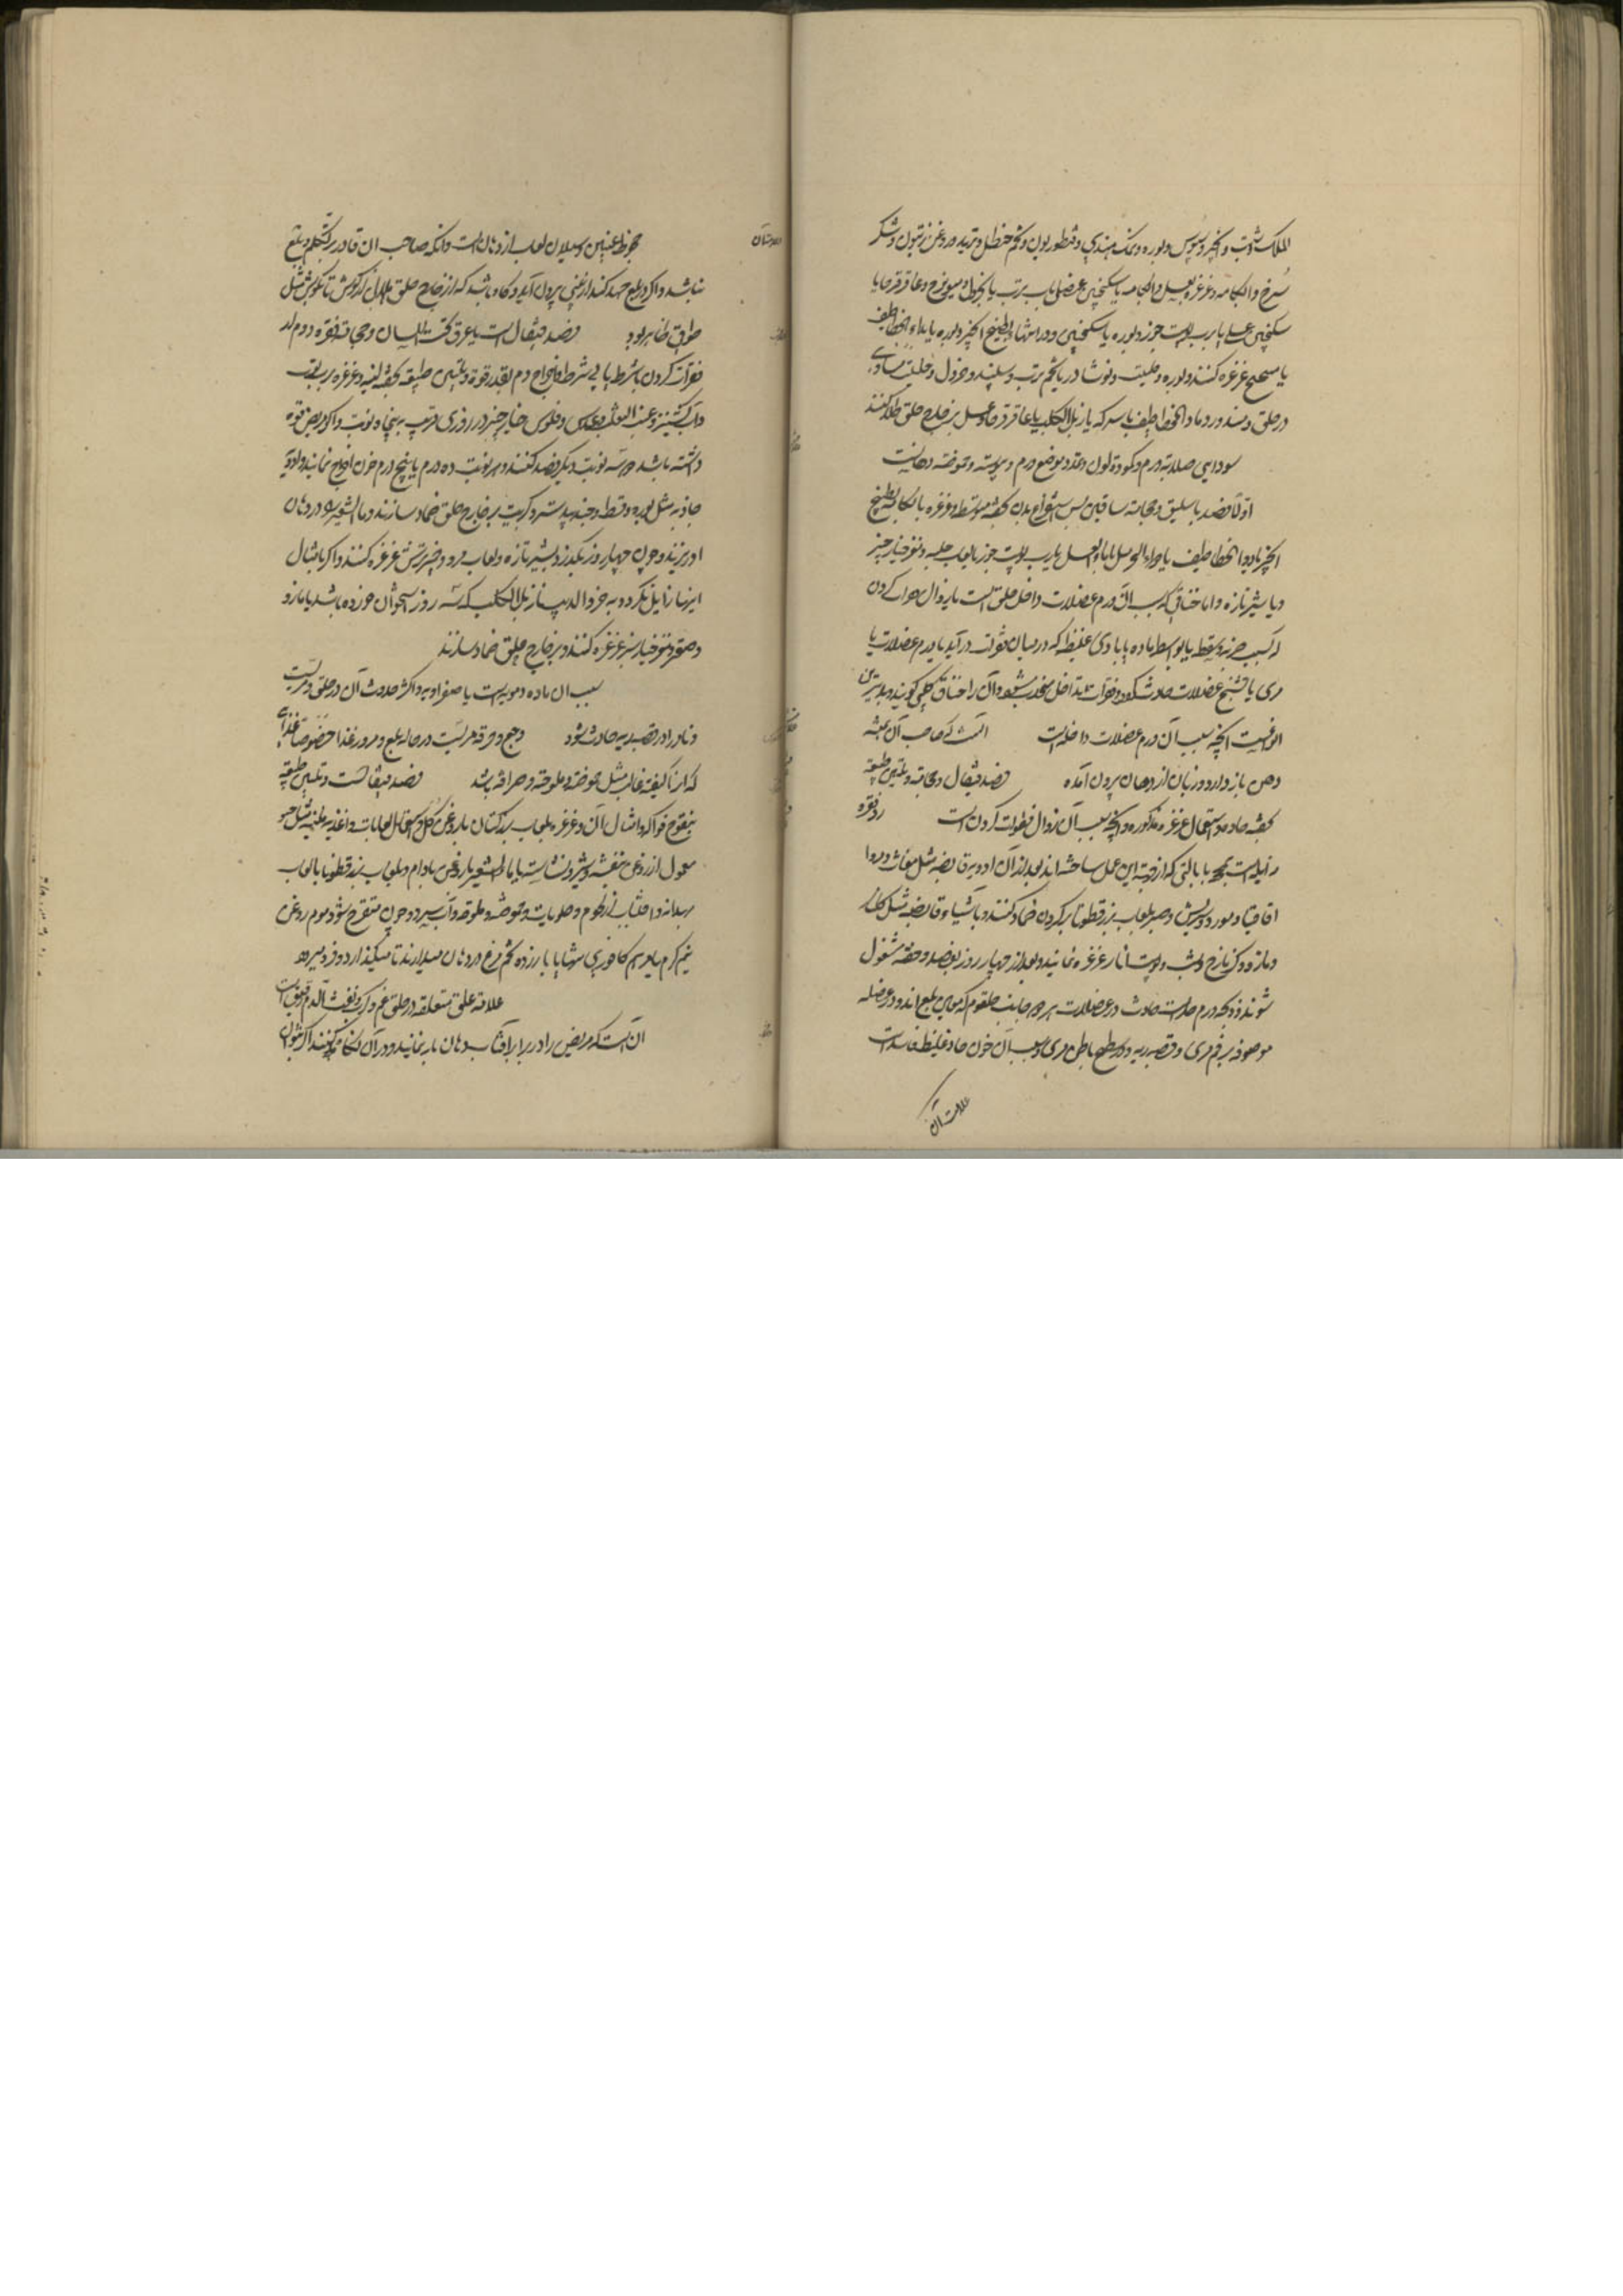 الملک شبت و انجیر و سبوس و بوره و نمک هندی و قنطوریون و تخم حنظل و تربد و روغن زیتون و شکر
سرخ و آبکامه و غرغره بعسل و آبکامه یا سکنجبین عنصلی با رب توت یا خردل و میویزج و عاقرقرحا یا
سکنجبین عسلی یا رب پوست جوز و بوره یا سکنجبین و در انتها بطبیخ انجیر و بوره یا بدواء الخطاطیف
یا غرغره کنند و بوره و حلتیت و نوشادر یا تخم ترب و سپند و خردل و حلتیت مساوی
در حلق دمند و رماد الخطاطیف با سرکه یا زبل الکلب یا عاقرقرحا و عسل بر خارج حلق طلا کنند
سودایی صلابة ورم و کمودة لون و تمدد موضع ورم و یبوسته و عفوصة دهانست
اولاً فصد باسلیق و حجامة ساقین پس استفراغ بدن بحقنه متوسط و غرغره بآبکامه و بطبیخ
انجیر یا دواء الخطاطیف یا بماء العسل یا رب پوست جوز یا لعاب حلبه و فلوس خیارچنبر
و یا شیر تازه و اما خناقی که سبب آن ورم عضلات داخل حلق است یا زوال مهرهای کردن
که بسبب ضربه و سقطه یا بواسطه ماده یا بادی غلیظ که در میان فقرات درآید یا ورم عضلات یا
مری یا تشنج عضلات حادث شود و فقرات بداخل منجذب شود و آن را خناق کلبی کویند و بدترین
انواعست آنچه سبب آن ورم عضلات داخله است آنست که صاحب آن همیشه
دهن باز دارد و زبان از دهان بیرون آمده فصد قیفال و حجامة و تلیین طبیعه
بحقنه حاده و استعمال غرغره مذکوره و آنچه سبب آن زوال فقرات کردن است رد فقره
زایله است بآلتی که از جهة این عمل ساخته اند و بعد از آن ادویه قابضه مثل مغاث و
اقاقیا و مورد و سریش و صبر بلعاب بزرقطونا بر کردن ضماد کنند و باشیاء قابضه مثل کلنار
و مازو و کزمازج و شب و پوست انار غرغره نمایند و بعد از چهار روز بفصد و حقنه مشغول
شوند و ذبحه ورم حارست حادث در عضلات هر دو جانب حلقوم که معین بلع اند و در عضله
موضوعه بر فم مری و قصبه ریه و در سطح باطن مری و سبب آن خون حاد غلیظ فاسدست
علامت آن
علامت آن
جحوظ عینین و سیلان لعاب از دهان است و آنکه صاحب آن قادر بر تکلم و بلع
نباشد و اکر در بلع جهد کند از بینی بیرون آید و کاه باشد که از خارج حلق هلالی از کوش تا بکوش مثل
طوق ظاهر بود فصد قیفال است یا عرق تحت اللسان و حجامت نقره دوم از
فقرات کردن با شرط یا بی شرط و اخراج دم بقدر قوة و تلیین طبیعه بحقنه لینه و غرغره برب توت
و آب کشنیز و عنب الثعلب و عدس و فلوس خیارچنبر در روزی قریب به پنجاه نوبت و اکر مریض قوه
داشته باشد دو سه نوبت دیکر فصد کنند و هر نوبت ده درم یا پنج درم خون اخراج نمایند و ادویه
جاذبه مثل بوره و قسط و جندبیدستر و کبریت بر خارج حلق ضماد سازند و ماء الشعیر در دهان
او ریزند و چون چهار روز بکذرد بشیر تازه و لعاب مرو و خیر ترش غرغره کنند و اکر بامثال
اینها زایل نکردد به خرو الدیب یا زبل الکلب که سه روز استخوان خورده باشد یا مازو
و صقر و فلوس خیارشنبر غرغره کنند و بر خارج حلق ضماد سازند
سبب آن ماده دمویه است یا صفراویه و اکثر حدوث آن در حلق و مریست
و نادرا در قصبه ریه حادث شود وجع و حرقه مریست در حاله بلع و مرور غذا خصوصا غذایی
که آن را کیفیة غالب مثل حموضة و ملوحة و حرافه باشد فصد قیفالست و تلیین طبیعه
بنقوع فواکه و امثال آن و غرغره بلعاب بزرکتان با روغن کل و استعمال لعابات و اغذیه ملینه مثل حسو
معمول از روغن بنفشه و شیر و نشاسته یا ماء الشعیر با روغن بادام و بلعاب بزرقطونا یا لعاب
بهدانه و اجتناب از لحوم و حلویات و حموضه و ملوحه و آب سرد و چون متقرح شود موم روغن
نیم کرم یا مرهم کافوری تنها یا با زرده تخم مرغ در دهان میدارند تا میکذارد و فرو میرود
علامة علق متعلقه در حلق غم و کرب و نفث الدم رقیق است
آن است که مریض را در برابر آفتاب دهان باز نمایند و در آن نکاه کنند اکر بتوان